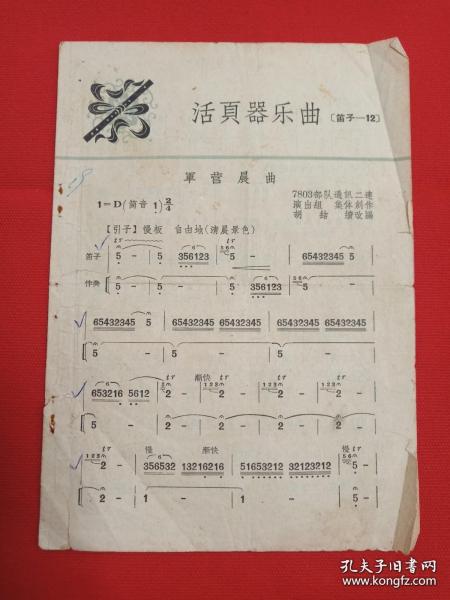 活頁器乐曲〔笛子—12〕
軍营晨曲
1=D(筒音1) 2/4
7803部队通訊二連
演出組 集体創作
胡結續改編
【引子】慢板 自由地(清晨景色)
笛子 5 - 5 356123 5 - 65432345 5
伴奏 5 - 5 - 5 356123 5 -
65432345 5 65432345 65432345 65432345 65432345
5 - 5 - 5 -
653216 5612 2 - 漸快 2 - 2 - 2 -
5 - 2 - 2 - 2 - 2 -
2 - 慢 356532 漸快 13216216 51653212 32123212 慢 5 -
2 - 1 - 1 - 5 -
孔夫子旧书网
www.kongfz.com